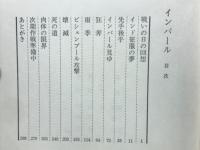 インパール
目次
戦いの日の回想 1
インド征服の夢 11
先手後手 38
インパール見ゆ 72
狂奔 94
雨季 124
ビシェンプール攻撃 153
壊滅 203
死の道 240
肉体の限界
次期作戦準備中
あとがき